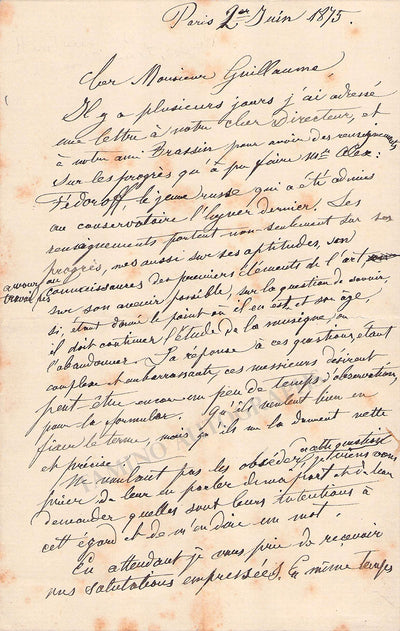 Paris 2er Juin 1875.
Cher Monsieur Guillaume,
Il y a plusieurs jours j'ai adressé
une lettre à notre cher Directeur, et
à notre ami Brassin pour avoir des renseignements
sur les progrès qu'a pu faire Mr Alex:
Fédoroff, le jeune russe qui a été admis
au conservatoire l'hyver dernier. Ses
renseignements portent non seulement sur ses
progrès, mes aussi sur ses aptitudes, son
connaissances des premiers éléments de l'art
sur son avenir possible, sur la question de savoir,
si, étant donné le point où il en est et son age,
il doit continuer l'étude de la musique, ou
l'abandonner. La réponse à ces questions, étant
complexe et embarrassante, ces messieurs désirent
peut être encore un peu de temps d'observation,
pour la formuler. Qu'ils veulent bien en
fixer le terme, mais qu'ils me la donnent nette
et précise.
Ne voulant pas les obséder, je viens vous
cette question
prier de leur en parler de ma part et de leur
demander quelles sont leurs intentions à
cet égard et de m'en dire un mot.
En attendant je vous prie de recevoir
nos salutations empressées. En même temps
TAMINO AUTOGRAPHS